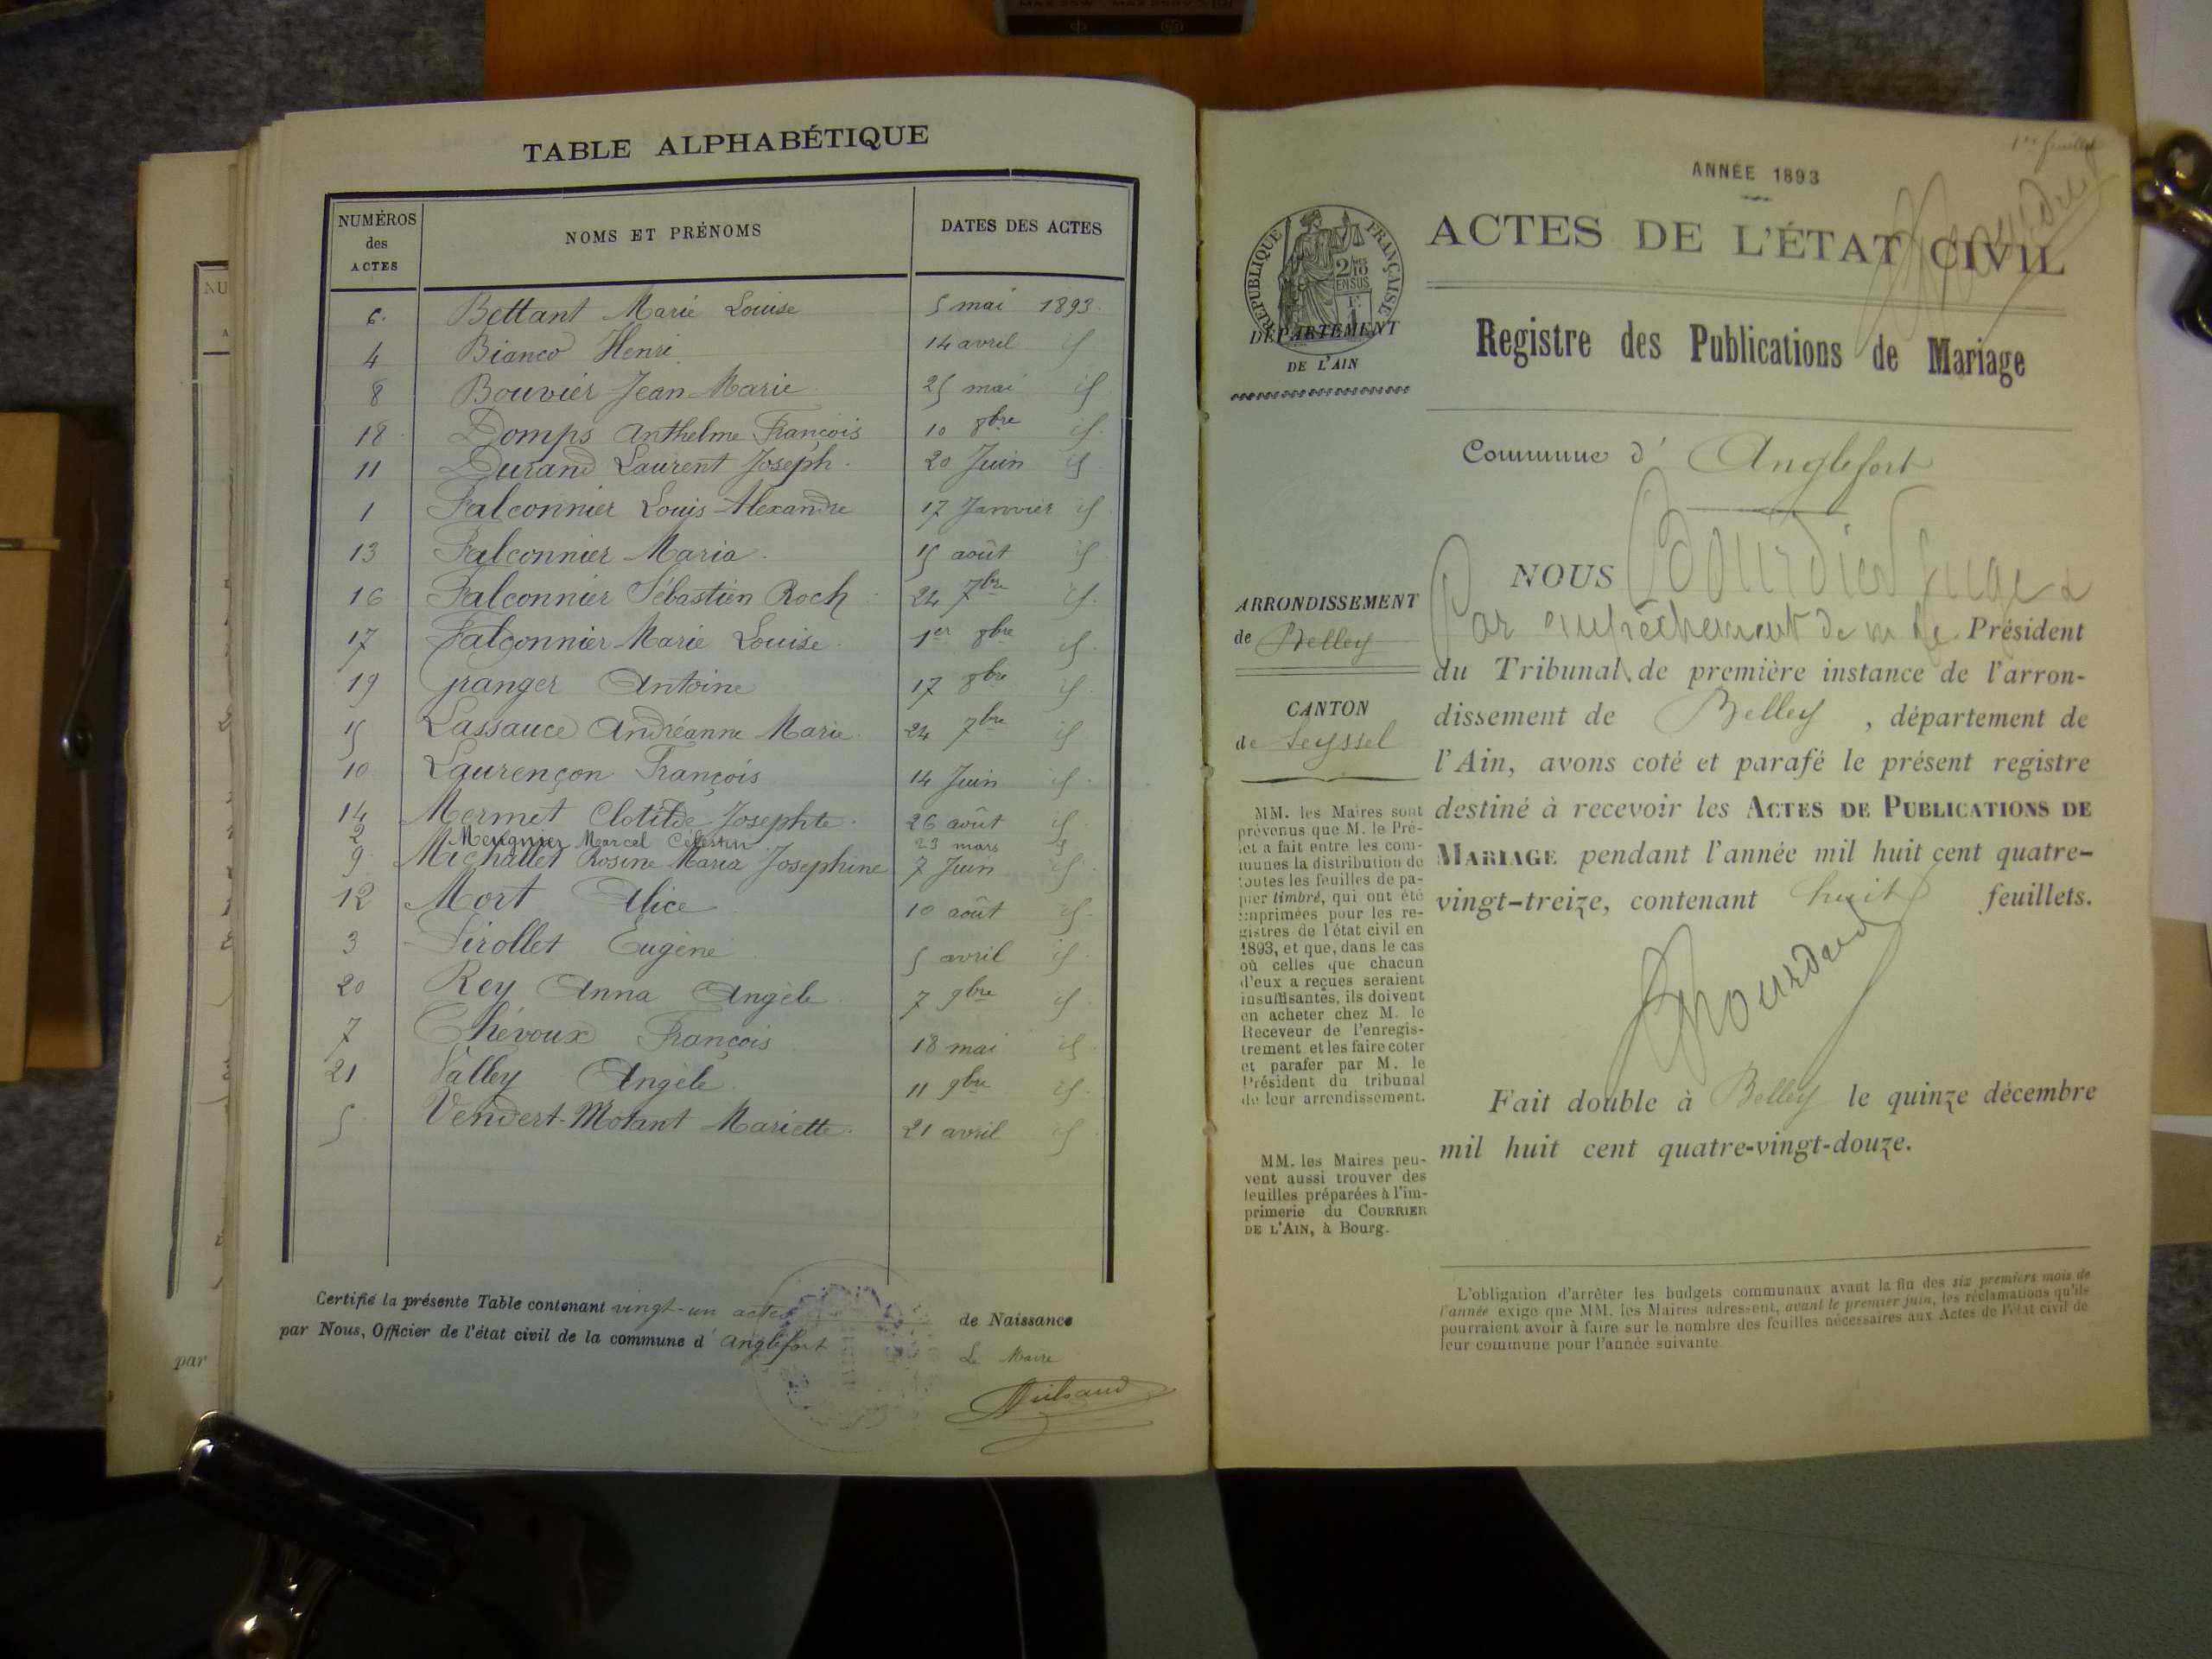 TABLE ALPHABÉTIQUE
NUMÉROS des ACTES NOMS ET PRÉNOMS DATES DES ACTES
6. Bettant Marie Louise 5 mai 1893.
4 Bianco Henri 14 avril id
8 Bouvier Jean Marie 25 mai id.
18 Domps Anthelme François 10 8bre id.
11 Durand Laurent Joseph. 20 Juin id
1 Falconnier Louis Alexandre 17 Janvier id
13 Falconnier Maria. 15 août id
16 Falconnier Sébastien Roch 24 7bre id.
17 Falconnier Marie Louise. 1er 8bre id.
19 Granger Antoine 17 8bre id
15 Lassauce Andréanne Marie. 24 7bre id
10 Laurençon François 14 Juin id.
14 Mermet Clotilde Josephte. 26 août id
2 Meugnier Marcel Célestin 23 mars id
9 Michallet Rosine Maria Josephine 7 Juin id
12 Mort Alice 10 août id.
3 Pirollet Eugène 5 avril id.
20 Rey Anna Angèle 7 9bre id
7 Thévoux François 18 mai id.
21 Valley Angèle. 11 9bre id.
5 Vendert-Motant Mariette. 21 avril id.
Certifié la présente Table contenant vingt-un actes de Naissance
par Nous, Officier de l'état civil de la commune d'Anglefort
Le Maire
par
NU
A
1er feuillet
ANNÉE 1893
RÉPUBLIQUE FRANÇAISE
2/10 EN SUS
ACTES DE L'ÉTAT CIVIL
DÉPARTEMENT
DE L'AIN
Registre des Publications de Mariage
Commune d' Anglefort
NOUS Bourdier Juge
Par empêchement de m le Président
ARRONDISSEMENT
de Belley
du Tribunal de première instance de l'arron-
dissement de Belley, département de
l'Ain, avons coté et parafé le présent registre
destiné à recevoir les ACTES DE PUBLICATIONS DE
MARIAGE pendant l'année mil huit cent quatre-
vingt-treize, contenant huit feuillets.
CANTON
de Seyssel
MM. les Maires sont
prévenus que M. le Pré-
fet a fait entre les com-
munes la distribution de
toutes les feuilles de pa-
pier timbré, qui ont été
imprimées pour les re-
gistres de l'état civil en
1893, et que, dans le cas
où celles que chacun
d'eux a reçues seraient
insuffisantes, ils doivent
en acheter chez M. le
Receveur de l'enregis-
trement et les faire coter
et parafer par M. le
Président du tribunal
de leur arrondissement.
MM. les Maires peu-
vent aussi trouver des
feuilles préparées à l'im-
primerie du COURRIER
DE L'AIN, à Bourg.
Fait double à Belley le quinze décembre
mil huit cent quatre-vingt-douze.
L'obligation d'arrêter les budgets communaux avant la fin des six premiers mois de
l'année exige que MM. les Maires adressent, avant le premier juin, les réclamations qu'ils
pourraient avoir à faire sur le nombre des feuilles nécessaires aux Actes de l'état civil de
leur commune pour l'année suivante.